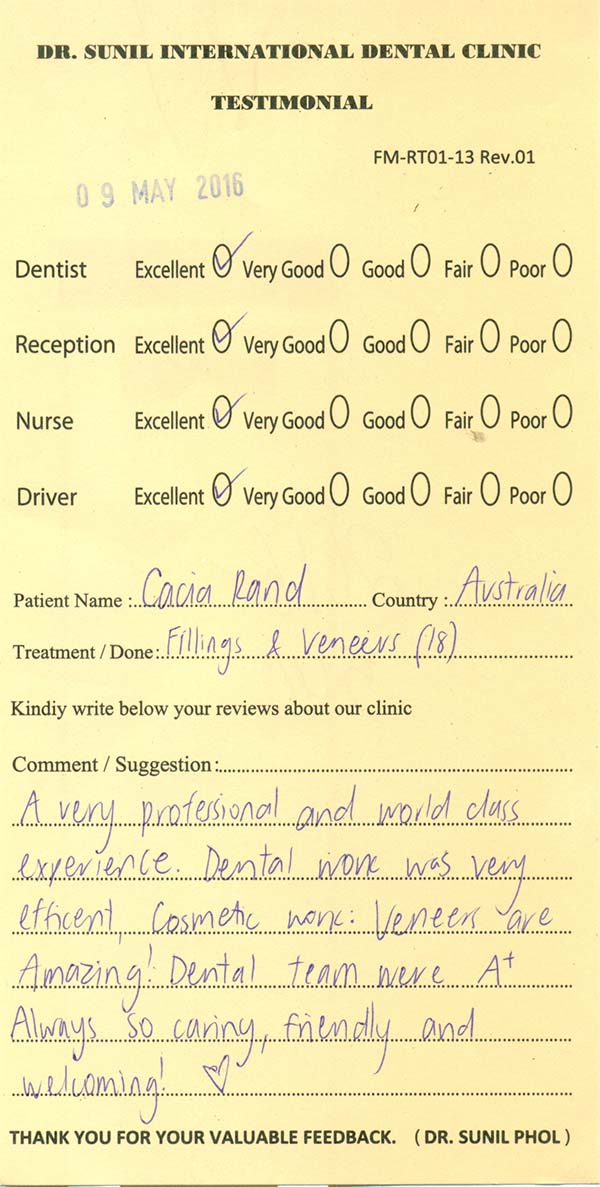 DR. SUNIL INTERNATIONAL DENTAL CLINIC
TESTIMONIAL
FM-RT01-13 Rev.01
09 MAY 2016
Dentist Excellent Very Good Good Fair Poor
Reception Excellent Very Good Good Fair Poor
Nurse Excellent Very Good Good Fair Poor
Driver Excellent Very Good Good Fair Poor
Patient Name : Cacia Rand Country : Australia
Treatment / Done: Fillings & Veneers (18)
Kindiy write below your reviews about our clinic
Comment / Suggestion:
A very professional and world class
experience. Dental work was very
efficent, Cosmetic work: Veneers are
Amazing! Dental team were A+
Always so caring, friendly and
welcoming! ♡
THANK YOU FOR YOUR VALUABLE FEEDBACK. ( DR. SUNIL PHOL )